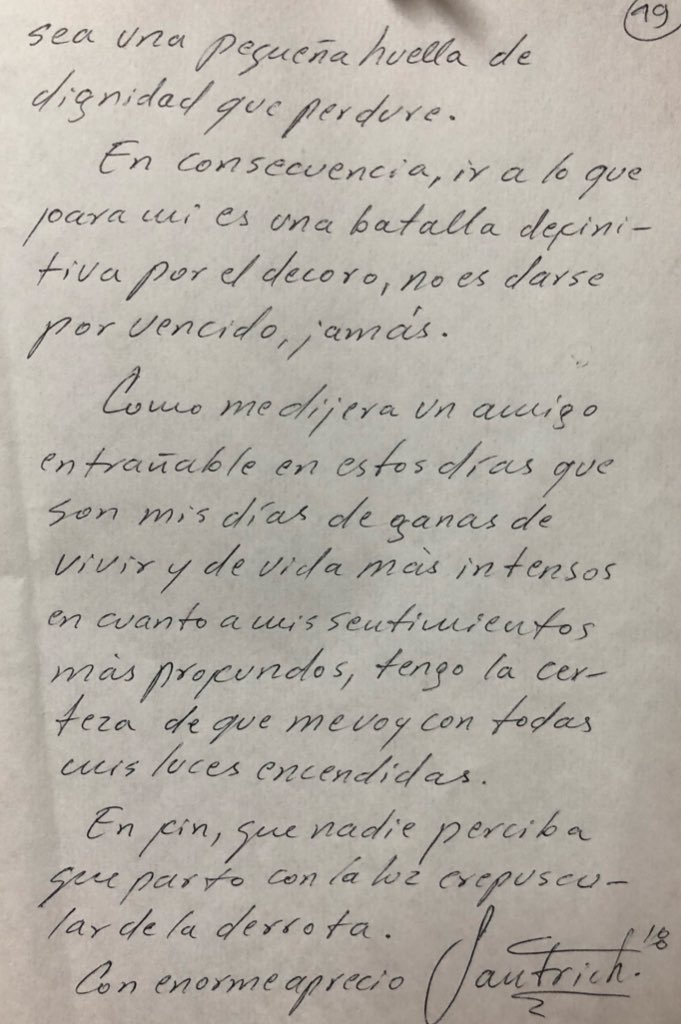 19
sea una pequeña huella de
dignidad que perdure.
En consecuencia, ir a lo que
para mi es una batalla defini-
tiva por el decoro, no es darse
por vencido, jamás.
Como me dijera un amigo
entrañable en estos días que
son mis días de ganas de
vivir y de vida más intensos
en cuanto a mis sentimientos
más profundos, tengo la cer-
teza de que me voy con todas
mis luces encendidas.
En fin, que nadie perciba
que parto con la luz crepuscu-
lar de la derrota.
Con enorme aprecio Santrich. 18